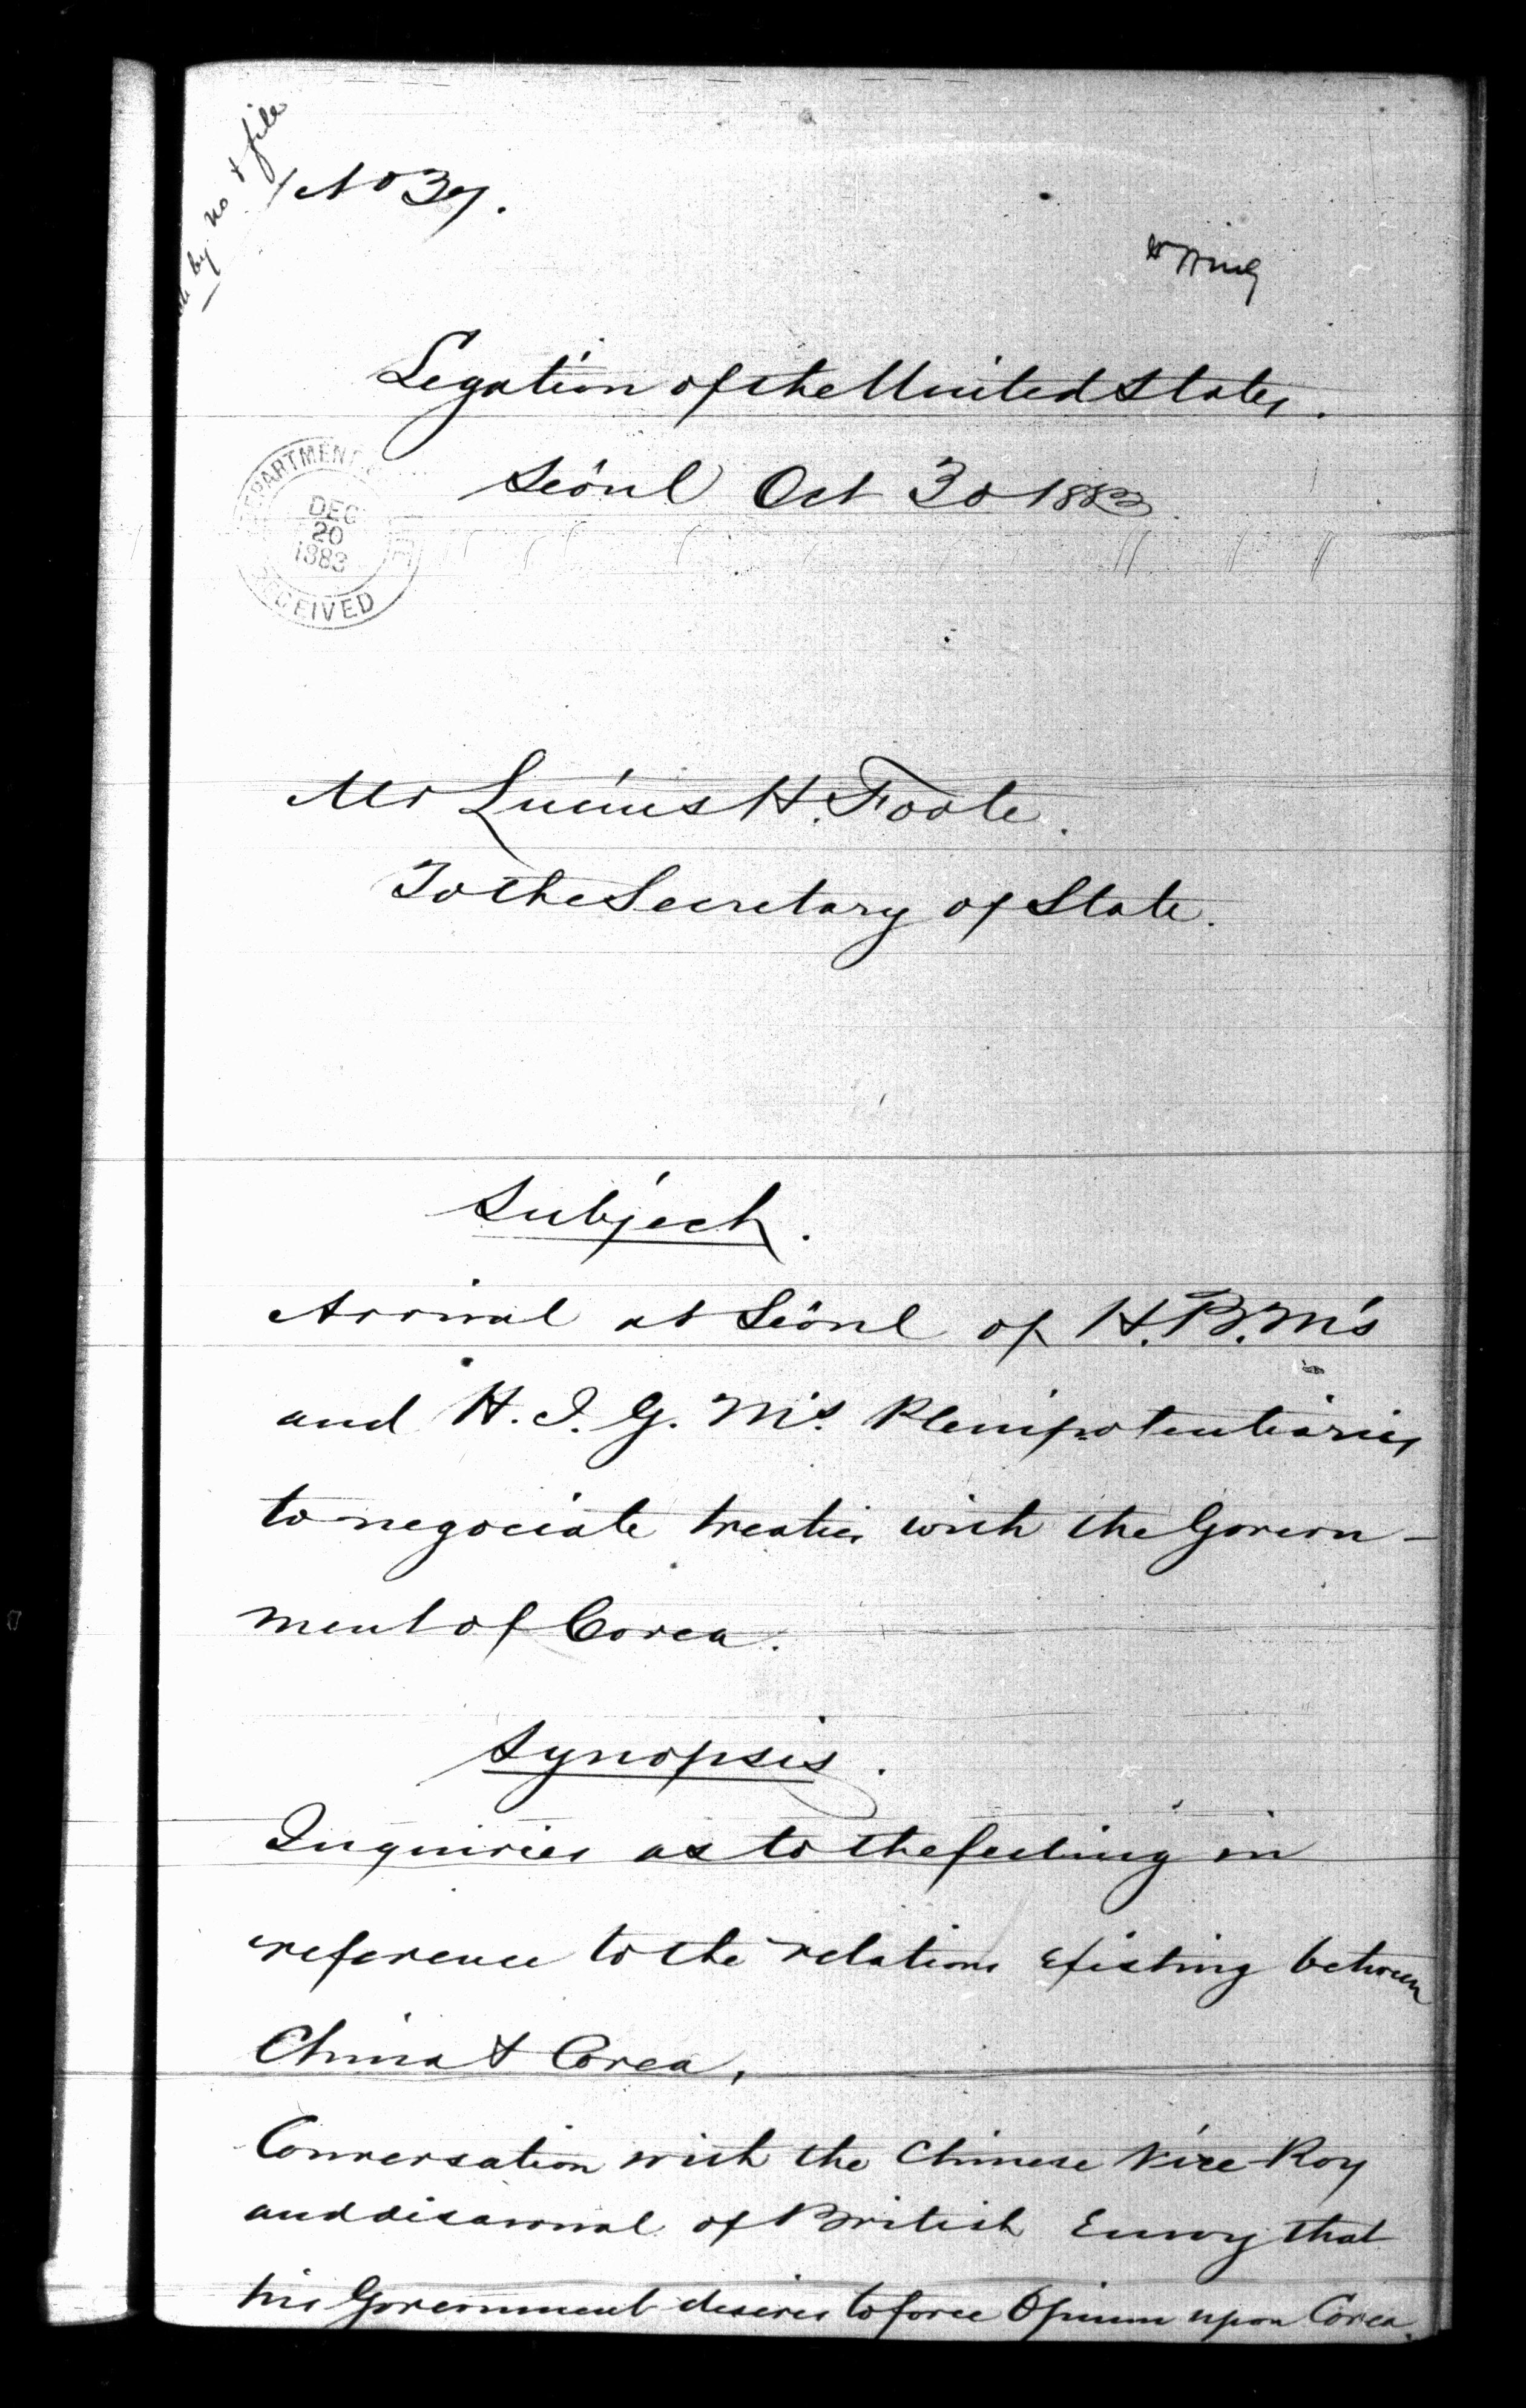 by no & file
No 37.
Legation of the United States.
Seoul Oct 30 1883
DEPARTMENT OF STATE
DEC
20
1883
RECEIVED
Mr Lucius H. Foote.
To the Secretary of State.
Subject.
Arrival at Seoul of H.B.M's
and H.I.G.M's Plenipotentiaries
to negociate treaties with the Govern-
ment of Corea.
Synopsis.
Inquiries as to the feeling in
reference to the relations existing between
China & Corea.
Conversation with the Chinese Vice-Roy
and disavowal of British Envoy that
his Government desires to force Opium upon Corea.